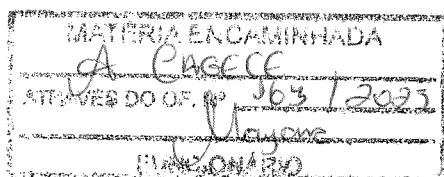 MATÉRIA ENCAMINHADA
A CAGECE
ATRAVÉS DO OF. Nº 163 / 2023
Mayane
FUNCIONÁRIO